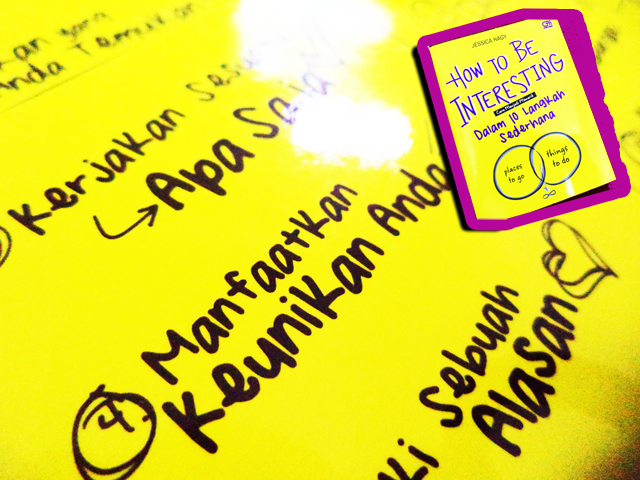 kan yang
Anda Temukan
Kerjakan Sesuatu
Apa Saja
4.
Manfaatkan
Keunikan Anda
ki Sebuah
Alasan
JESSICA HAGY
HOW TO BE
INTERESTING
Dalam 10 Langkah
Sederhana
places
to go
things
to do